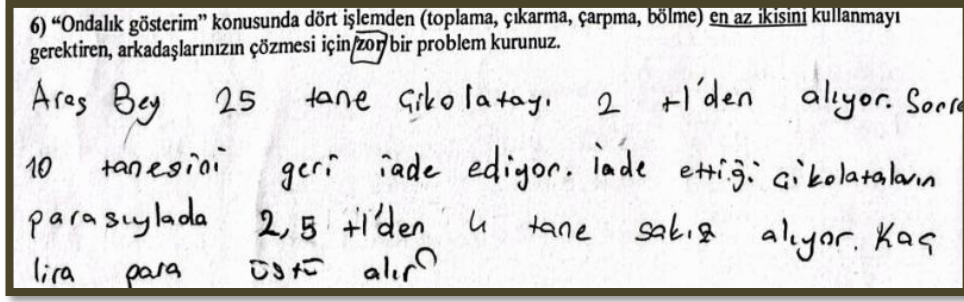 6) “Ondalık gösterim” konusunda dört işlemden (toplama, çıkarma, çarpma, bölme) en az ikisini kullanmayı
gerektiren, arkadaşlarınızın çözmesi için zor bir problem kurunuz.
Aras Bey 25 tane çikolatayı 2 tl'den alıyor. Sonra
10 tanesini geri iade ediyor. İade ettiği çikolataların
parasıylada 2,5 tl'den 4 tane sakız alıyor. Kaç
lira para üstü alır?